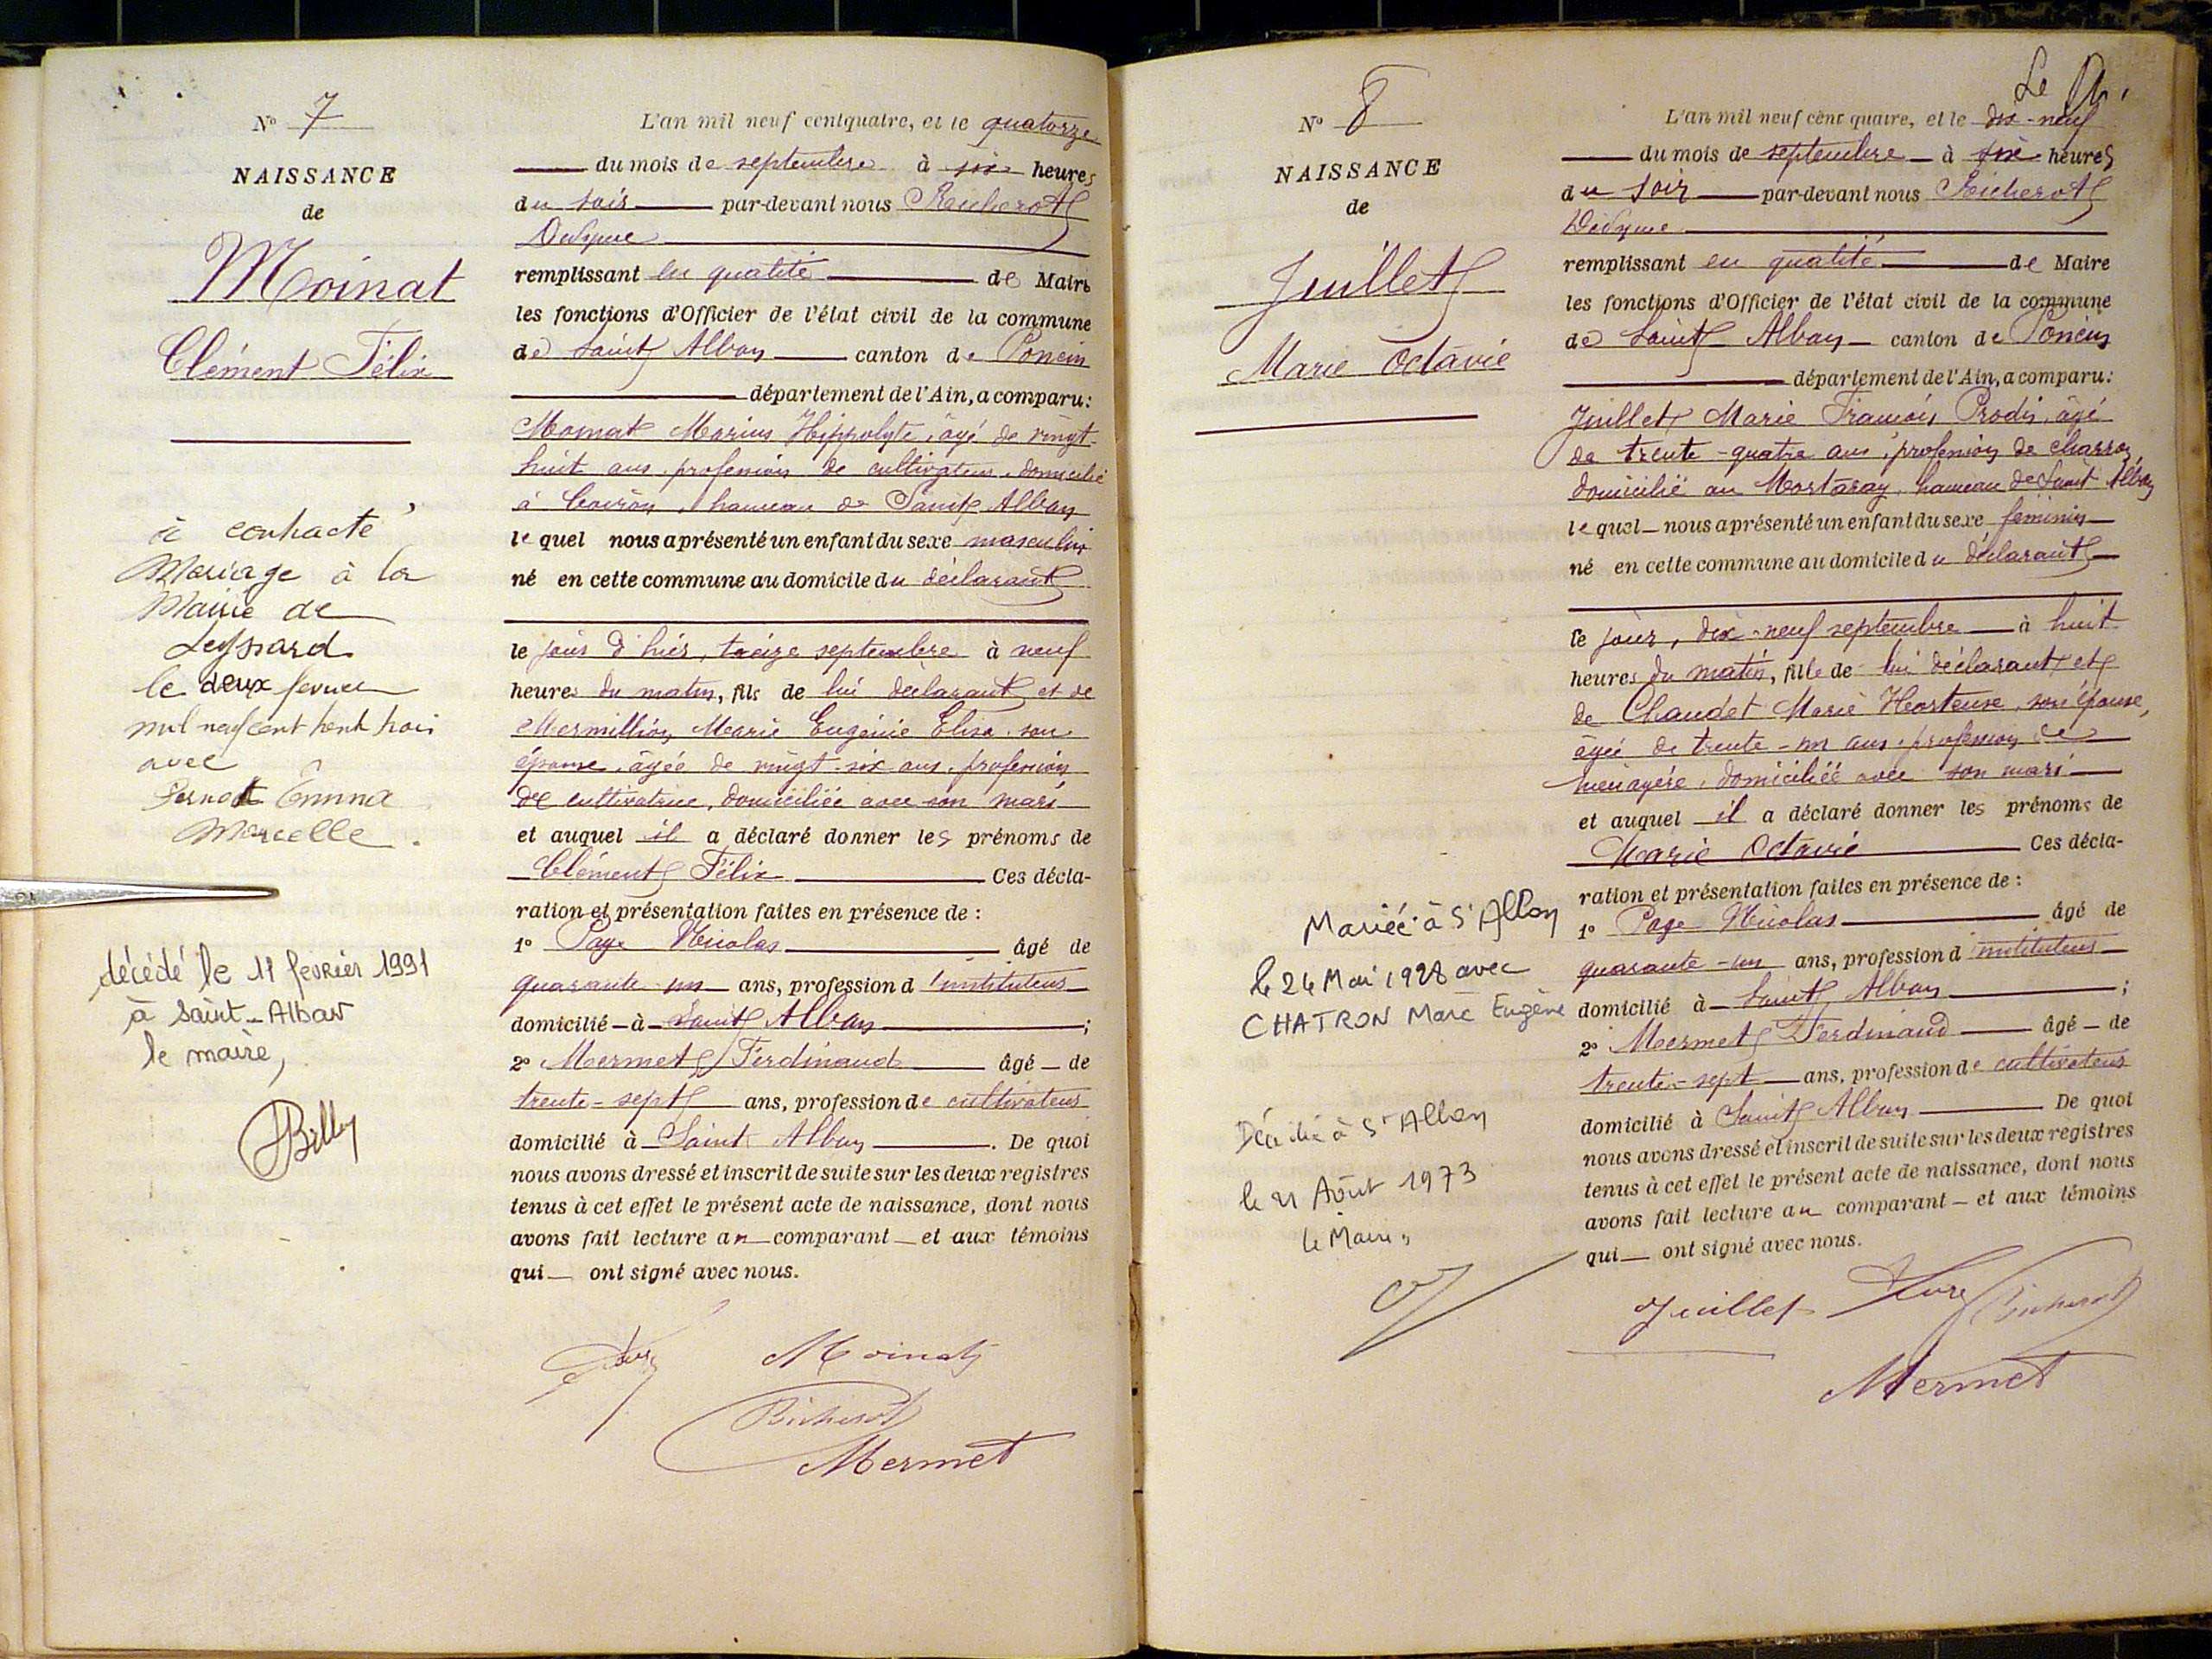 N° 7
NAISSANCE
de
Moinat
Clément Félix
à contracté
Mariage à la
Mairie de
Leyssard
le deux fevrier
mil neuf cent trente trois
avec
Pernet Emma
Marcelle.
décédé le 11 février 1991
à Saint-Alban
le maire,
Billy
L'an mil neuf cent quatre, et le quatorze
du mois de septembre à six heures
du soir par-devant nous Richerot
Didyme
remplissant en qualité de Maire
les fonctions d'Officier de l'état civil de la commune
de Saint Alban canton de Poncin
département de l'Ain, a comparu:
Moinat Marius Hippolyte, âgé de vingt-
huit ans, profession de cultivateur, domicilié
à Coiron, hameau de Saint Alban
lequel nous a présenté un enfant du sexe masculin
né en cette commune au domicile du déclarant
le jour d'hier, treize septembre à neuf
heures du matin, fils de lui déclarant et de
Mermillion Marie Eugénie Elisa, son
épouse, âgée de vingt-six ans, profession
de cultivatrice, domiciliée avec son mari
et auquel il a déclaré donner les prénoms de
Clément Félix Ces décla-
ration et présentation faites en présence de :
1° Page Nicolas âgé de
quarante-un ans, profession d'instituteur
domicilié à Saint Alban ;
2° Mermet Ferdinand âgé de
trente-sept ans, profession de cultivateur
domicilié à Saint Alban . De quoi
nous avons dressé et inscrit de suite sur les deux registres
tenus à cet effet le présent acte de naissance, dont nous
avons fait lecture au comparant et aux témoins
qui ont signé avec nous.
Moinat
Richerot
Mermet
N° 8
NAISSANCE
de
Juillet
Marie Octavie
Mariée à St Alban
le 26 Mai 1928 avec
CHATRON Marc Eugène
Décédée à St Alban
le 21 Août 1973
le Maire,
Le
L'an mil neuf cent quatre, et le dix-neuf
du mois de septembre à six heures
du soir par-devant nous Richerot
Didyme
remplissant en qualité de Maire
les fonctions d'Officier de l'état civil de la commune
de Saint Alban canton de Poncin
département de l'Ain, a comparu:
Juillet Marie François Prodis, âgé
de trente-quatre ans, profession de charron,
domicilié au Mortaray, hameau de Saint Alban
lequel nous a présenté un enfant du sexe féminin
né en cette commune au domicile du déclarant
le jour, dix-neuf septembre à huit
heures du matin, fille de lui déclarant et
de Chaudet Marie Hortense, son épouse,
âgée de trente-un ans, profession de
ménagère, domiciliée avec son mari
et auquel il a déclaré donner les prénoms de
Marie Octavie Ces décla-
ration et présentation faites en présence de :
1° Page Nicolas âgé de
quarante-un ans, profession d'instituteur
domicilié à Saint Alban ;
2° Mermet Ferdinand âgé de
trente-sept ans, profession de cultivateur
domicilié à Saint Alban De quoi
nous avons dressé et inscrit de suite sur les deux registres
tenus à cet effet le présent acte de naissance, dont nous
avons fait lecture au comparant et aux témoins
qui ont signé avec nous.
Juillet Richerot
Mermet